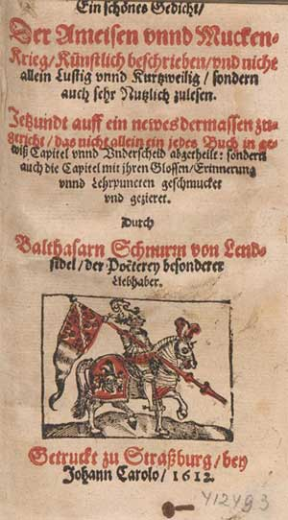 Ein schönes Gedicht/
Der Ameisen vnnd Mucken-
Krieg/Künstlich beschrieben/vnd nicht
allein Lustig vnnd Kurtzweilig/sondern
auch sehr Nutzlich zulesen.
Jetzundt auff ein newes dermassen zu-
gericht/das nicht allein ein jedes Buch in ge-
wiß Capitel vnnd Vnderscheid abgetheilt: sondern
auch die Capitel mit jhren Glossen/Erinnerung
vnnd Lehrpuncten geschmucket
vnd gezieret.
Durch
Balthasarn Schnurrn von Lend-
sidel/der Poëterey besonderer
Liebhaber.
Getruckt zu Straßburg/bey
Johann Carolo/1612.
412493